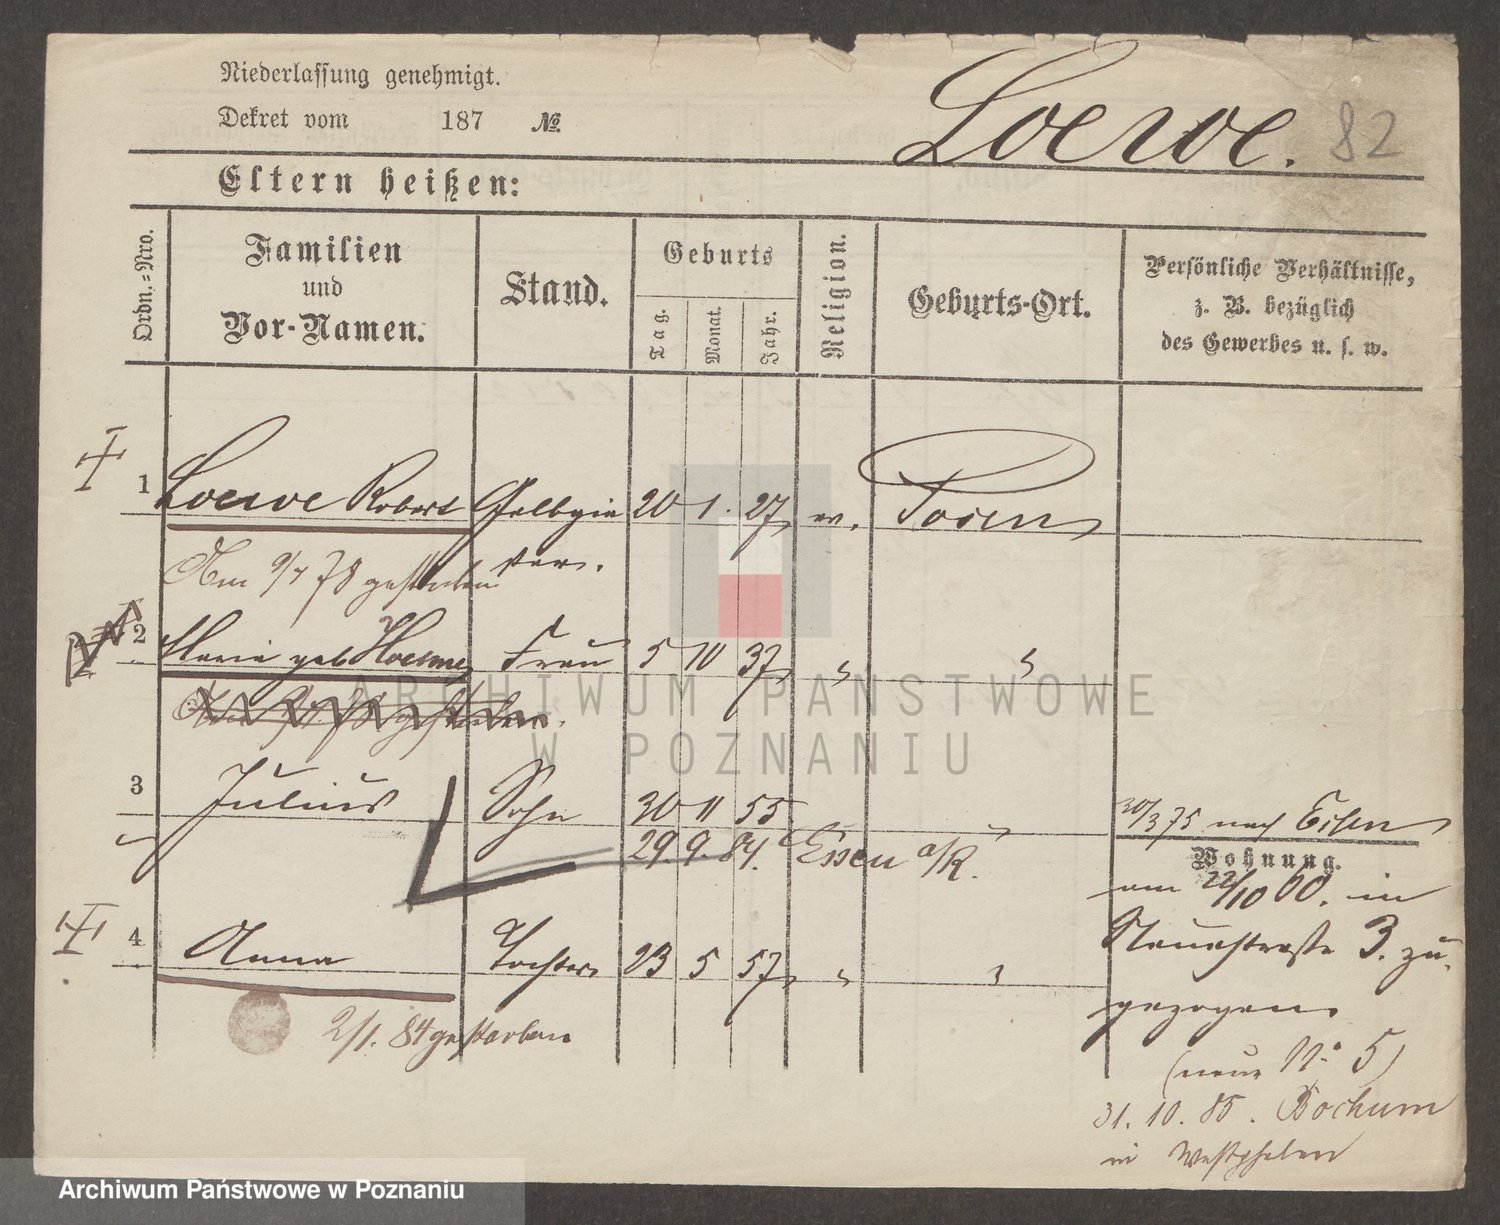 Niederlassung genehmigt.
Dekret vom 187 №
Loewe. 82
Eltern heißen:
Ordn.-Nro.
Familien und Vor-Namen.
Stand.
Geburts
Tag.
Monat.
Jahr.
Religion.
Geburts-Ort.
Persönliche Verhältnisse,
z. B. bezüglich
des Gewerbes u. s. w.
1 Loewe Robert Gelbgie 20 1. 27 ev. Posen
Am 9/7 78 gestorben
2 Maria geb. Frau 5 10 37
gestorben.
3 Julius Sohn 30 11 55 30/3 75 nach Essen
29. 9. 84. Essen a/R.
Wohnung.
am 22/10 60. in
4 Anna Tochter 23 5 57
3. zu-
gezogen.
2/1. 84 gestorben
(neue No 5)
31. 10. 85. Bochum
in Westphalen
ARCHIWUM PAŃSTWOWE
W POZNANIU
Archiwum Państwowe w Poznaniu